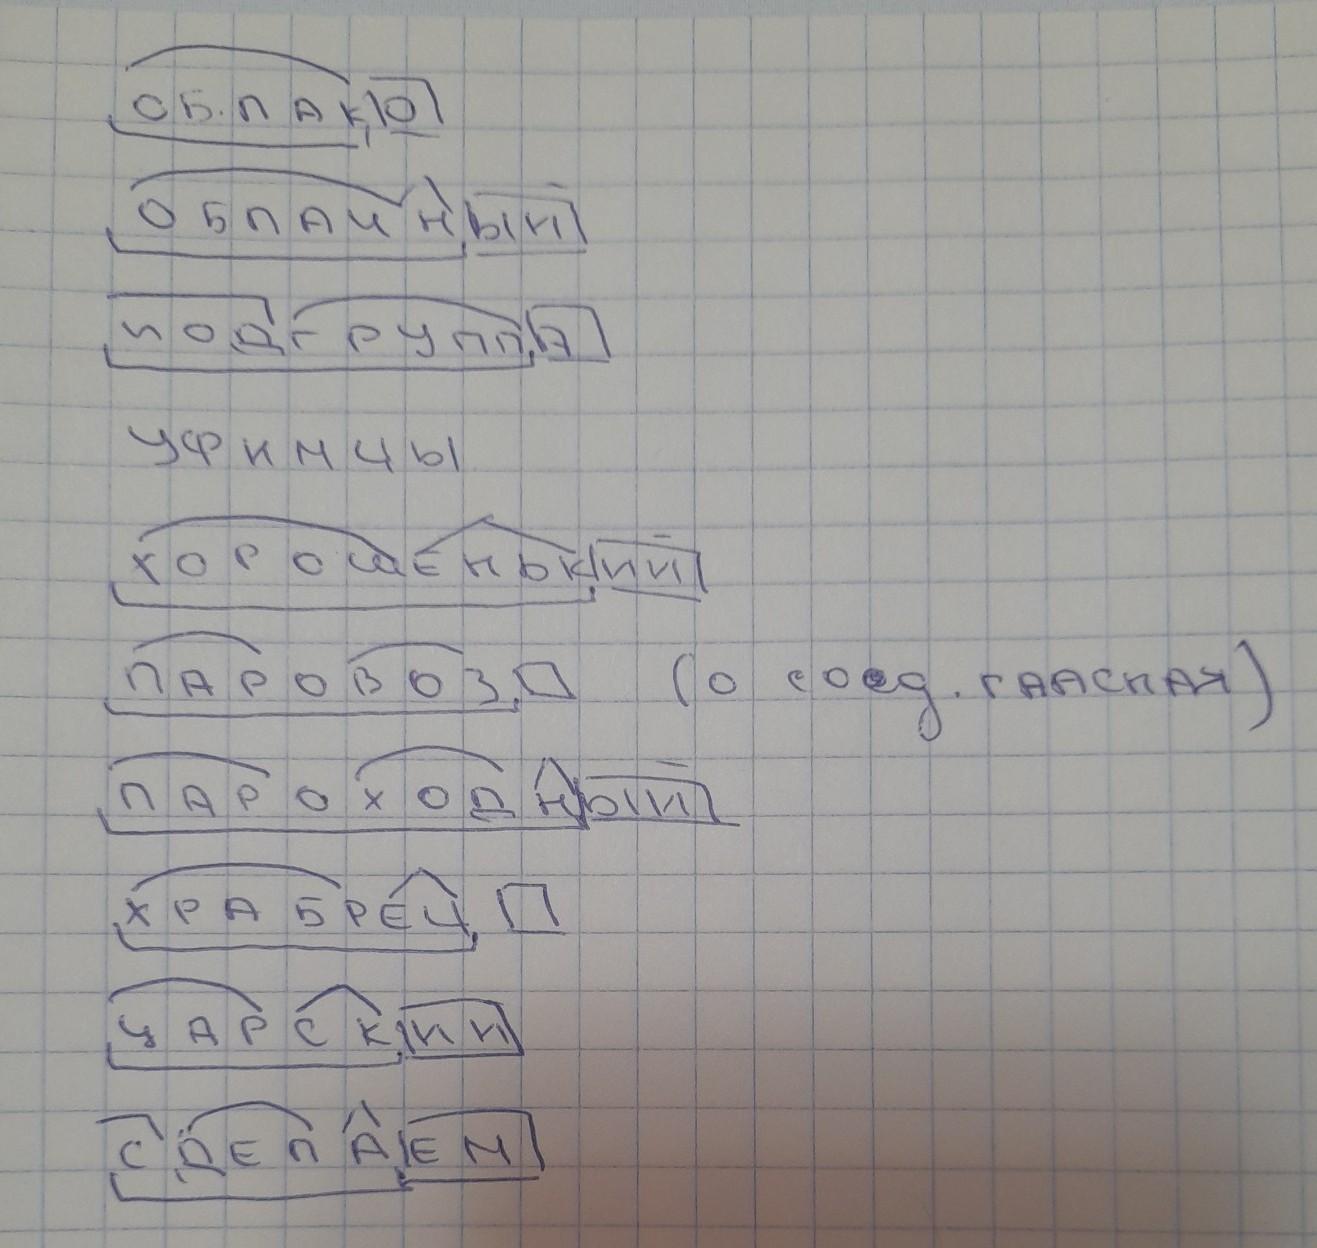 ОБЛАКО
ОБЛАЧНЫЙ
ПОДГРУППА
ХОРОШЕНЬКИЙ
ПАРОВОЗ (О соед. гласная)
ПАРОХОДНЫЙ
ХРАБРЕЦ
ЦАРСКИЙ
СДЕЛАЕМ